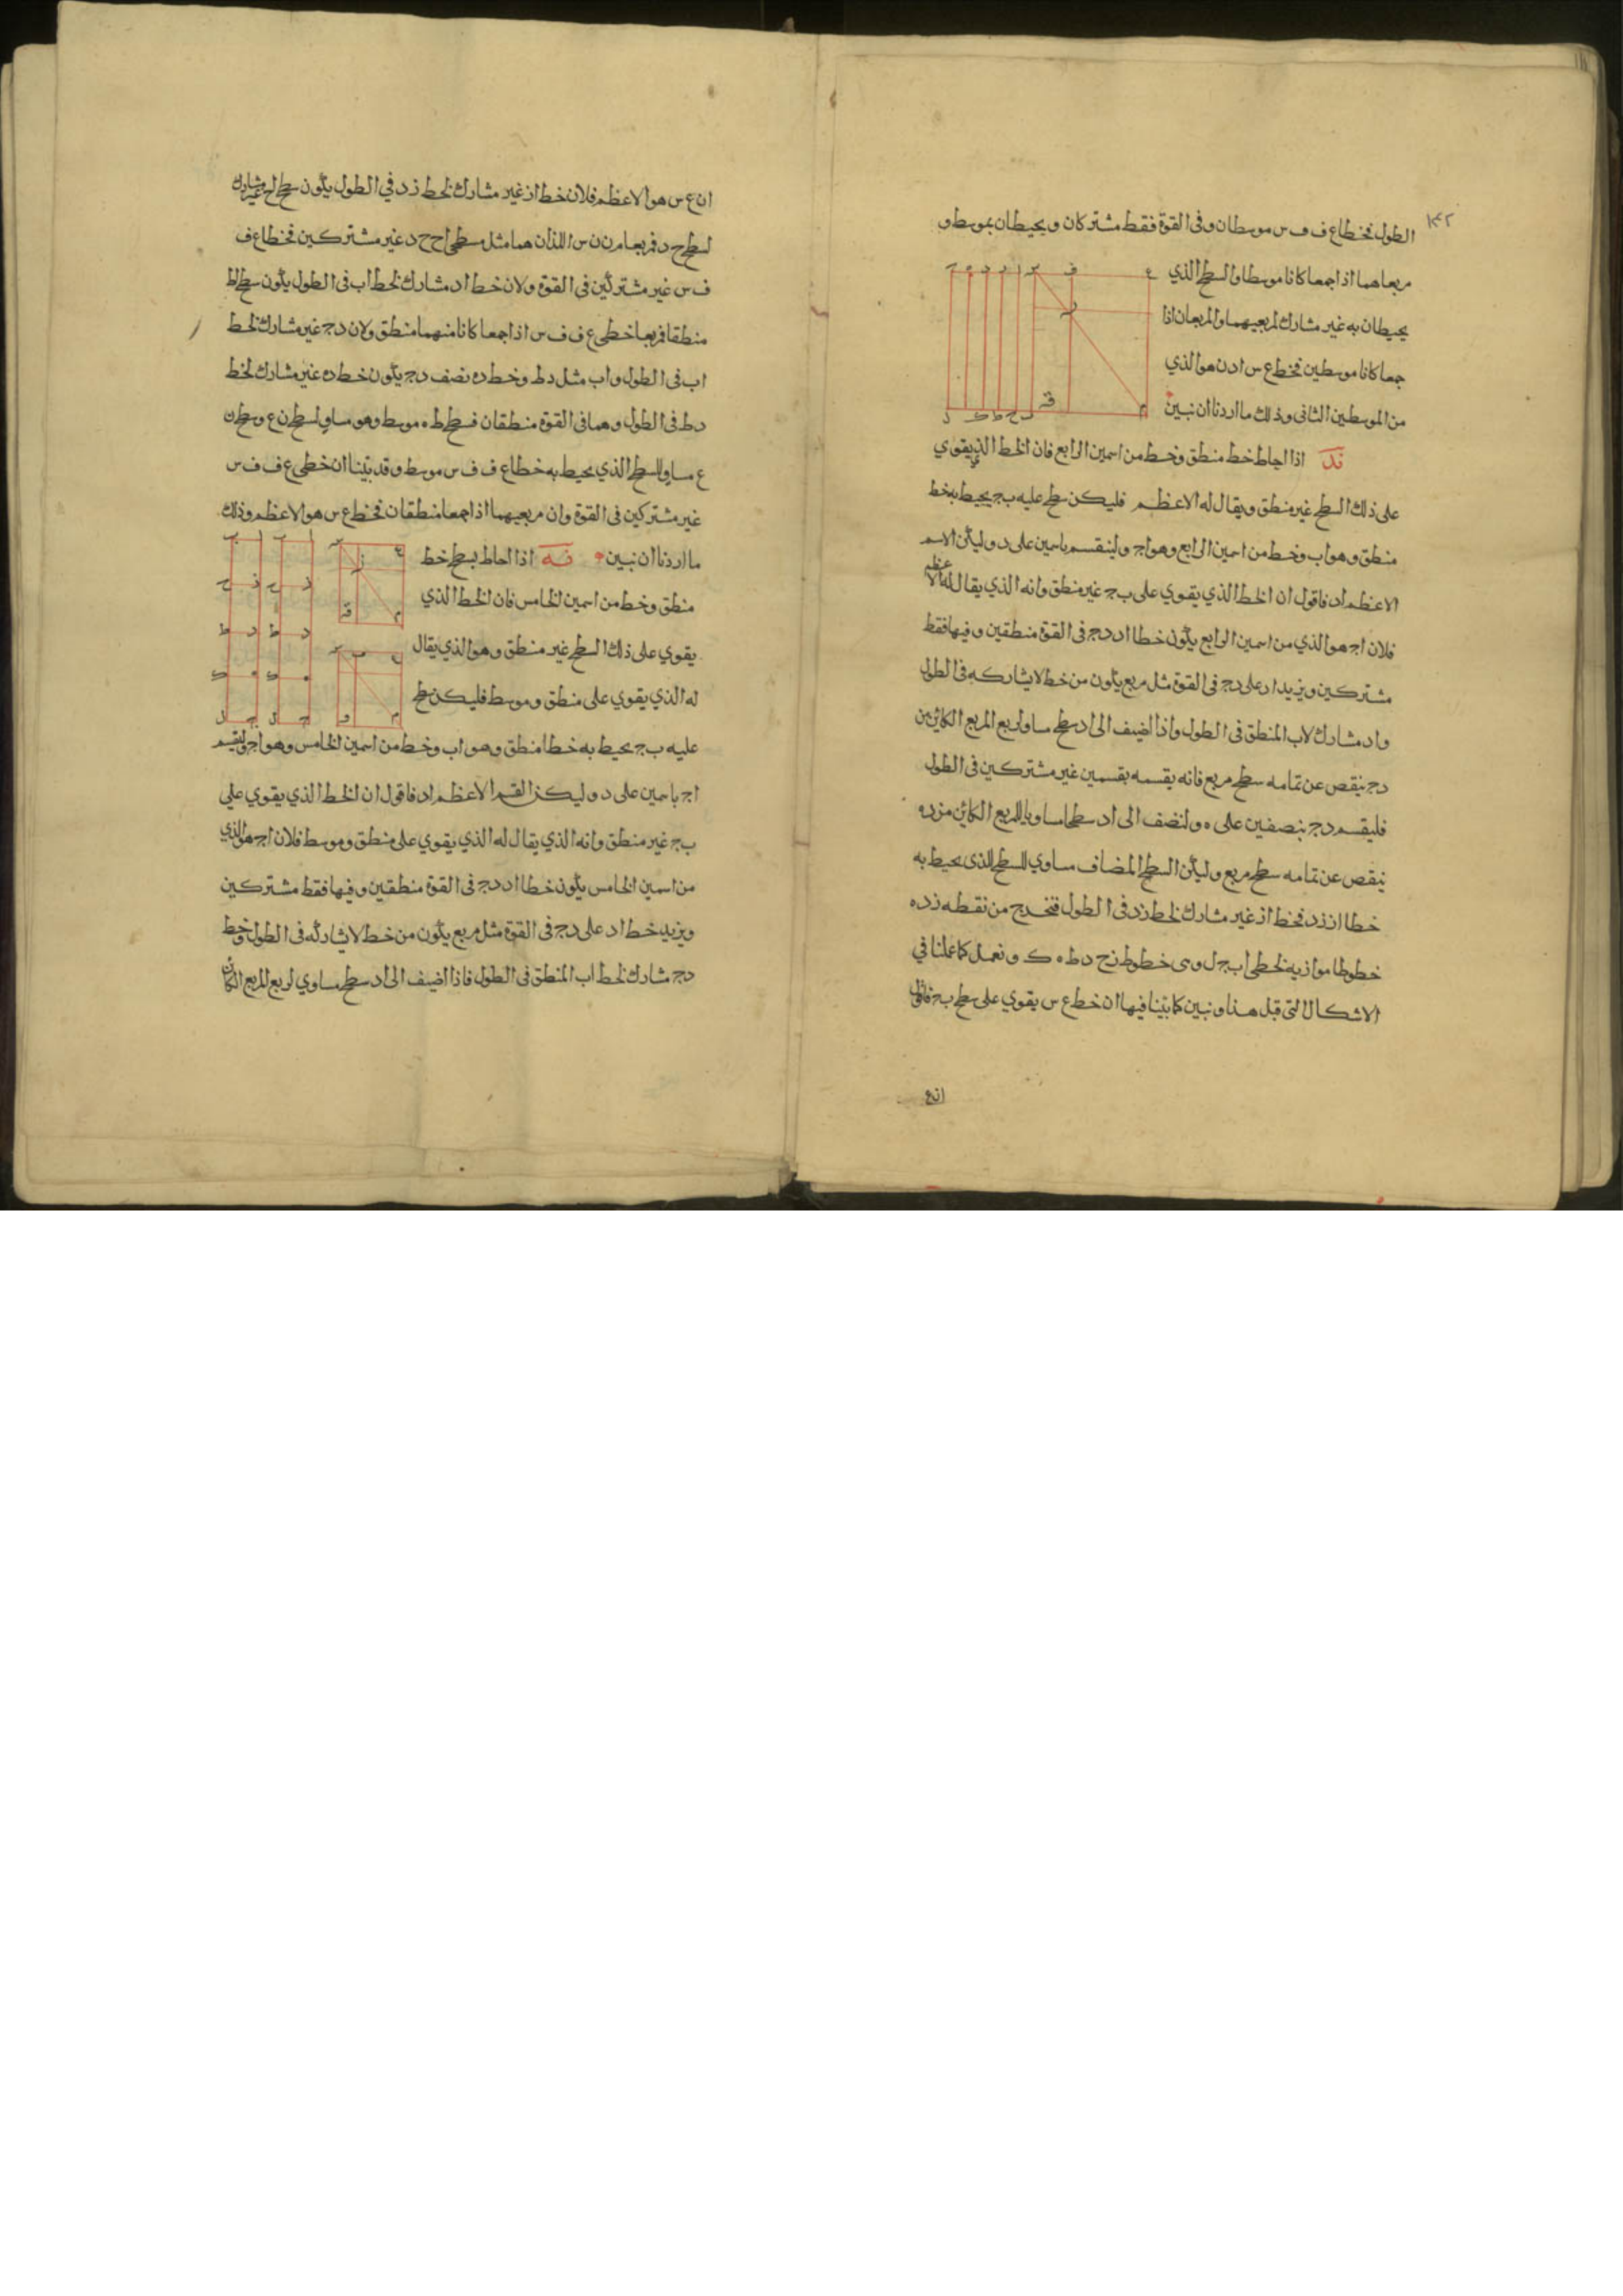 ١٤٢
الطول فخطا ع ف ف س موسطان وفى القوة فقط مشتركان ويحيطان بموسط و
مربعاهما اذا جمعا كانا موسطا والسطح الذي
يحيطان به غير مشارك لمربعيهما والمربعان اذا
جمعا كانا موسطين فخط ع س اذن هو الذي
من الموسطين الثانى وذلك ما اردنا ان نبين
ند اذا احاط خط منطق وخط من اسمين الرابع فان الخط الذي يقوي
على ذلك السطح غير منطق ويقال له الاعظم فليكن سطح عليه ب ج يحيط به خط
منطق وهو اب وخط من اسمين الرابع وهو اج ولينقسم باسمين على د وليكن الاسم
الاعظم اد فاقول ان الخط الذي يقوي على ب ج غير منطق وانه الذي يقال له الاعظم
فلان اج هو الذي من اسمين الرابع يكون خطا اد دج فى القوة منطقين وفيها فقط
مشتركين ويزيد اد على دج فى القوة مثل مربع يكون من خط لا يشاركه فى الطول
واد مشارك لاب المنطق فى الطول واذا اضيف الى اد سطح مساو لربع المربع الكائن من
دج ينقص عن تمامه سطح مربع فانه يقسمه بقسمين غير مشتركين فى الطول
فليقسم دج بنصفين على ه ولنضف الى اد سطحا مساويا للمربع الكائن من ده
ينقص عن تمامه سطح مربع وليكن السطح المضاف مساوي للسطح الذى يحيط به
خطا از زد فخط از غير مشارك لخط زد فى الطول فنخرج من نقطه ز د ه
خطوطا موازيه لخطي اب ج ل وهى خطوط زح دط ه ك ونعمل كما عملنا في
الاشكال التى قبل هذا ونبين كما بينا فيها ان خط ع س يقوي على سطح ب ج فاقول
ان ع
ان ع س هو الاعظم فلان خط از غير مشارك لخط زد في الطول يكون سطح اح غير مشارك
لسطح ح د فمربعا م ن ن س اللذان هما مثل سطحي اح ح د غير مشتركين فخطا ع ف
ف س غير مشتركين فى القوة ولان خط اد مشارك لخط اب فى الطول يكون سطح اط
منطقا فمربعا خطى ع ف ف س اذا جمعا كانا منهما منطق ولان دج غير مشارك لخط
اب فى الطول واب مثل دط وخط ده نصف دج يكون خط ده غير مشارك لخط
دط فى الطول وهما فى القوة منطقان فسطح ط ه موسط وهو مساو لسطح ن ع وسطح ن
ع مساو للسطح الذي يحيط به خطا ع ف ف س موسط وقد بينا ان خطى ع ف ف س
غير مشتركين فى القوة وان مربعيهما اذا جمعا منطقان فخط ع س هو الاعظم وذلك
ما اردنا ان نبين نه اذا احاط بسطح خط
منطق وخط من اسمين الخامس فان الخط الذي
يقوي على ذلك السطح غير منطق وهو الذي يقال
له الذي يقوي على منطق وموسط فليكن سطح
عليه ب ج يحيط به خطا منطق وهو اب وخط من اسمين الخامس وهو اج ولينقسم
اج باسمين على د وليكن القسم الاعظم اد فاقول ان الخط الذي يقوي على
ب ج غير منطق وانه الذي يقال له الذي يقوي على منطق وموسط فلان اج هو الذي
من اسمين الخامس يكون خطا اد دج فى القوة منطقين وفيها فقط مشتركين
ويزيد خط اد على دج فى القوة مثل مربع يكون من خط لا يشاركه فى الطول وخط
دج مشارك لخط اب المنطق فى الطول فاذا اضيف الى اد سطح مساوي لربع المربع الكائن